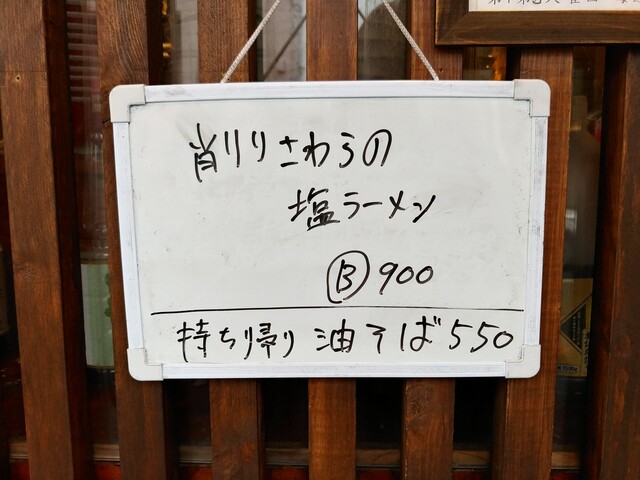 削りさわらの
塩ラーメン
Ⓑ900
持ち帰り 油そば550